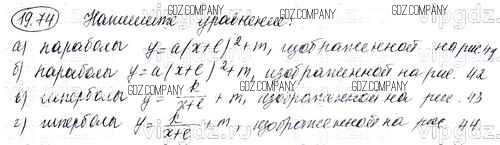 19.74 Напишите уравнение:
а) параболы y = a(x+l)²+m, изображенной на рис. 41
б) параболы y = a(x+l)²+m, изображенной на рис. 42
в) гиперболы y = k/(x+l) + m, изображенной на рис. 43
г) гиперболы y = k/(x+l) + m, изображенной на рис. 44
GDZ.COM
GDZ.COM
GDZ.COM
GDZ.COM
GDZ.COM
GDZ.COM
GDZ.COM
GDZ.COM